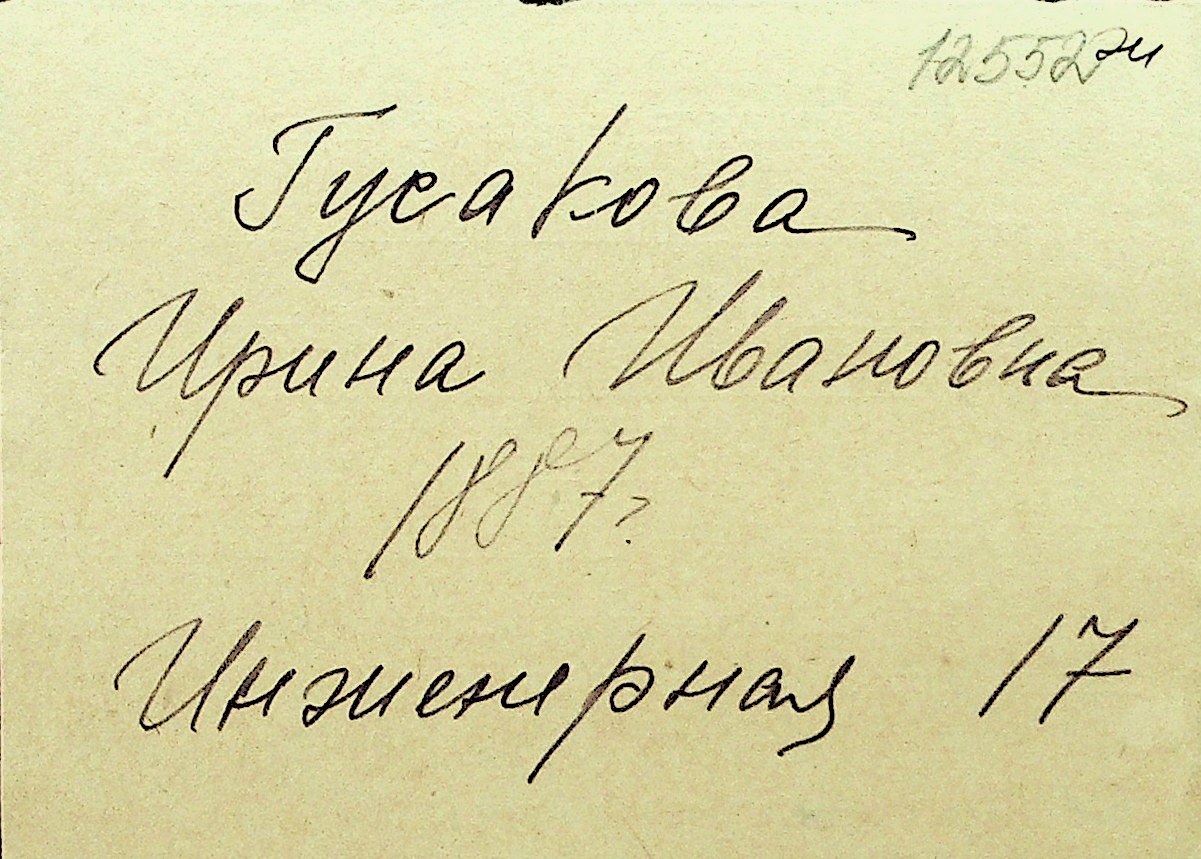 12552 ги
Гусакова
Ирина Ивановна
1887г.
Инженерная 17